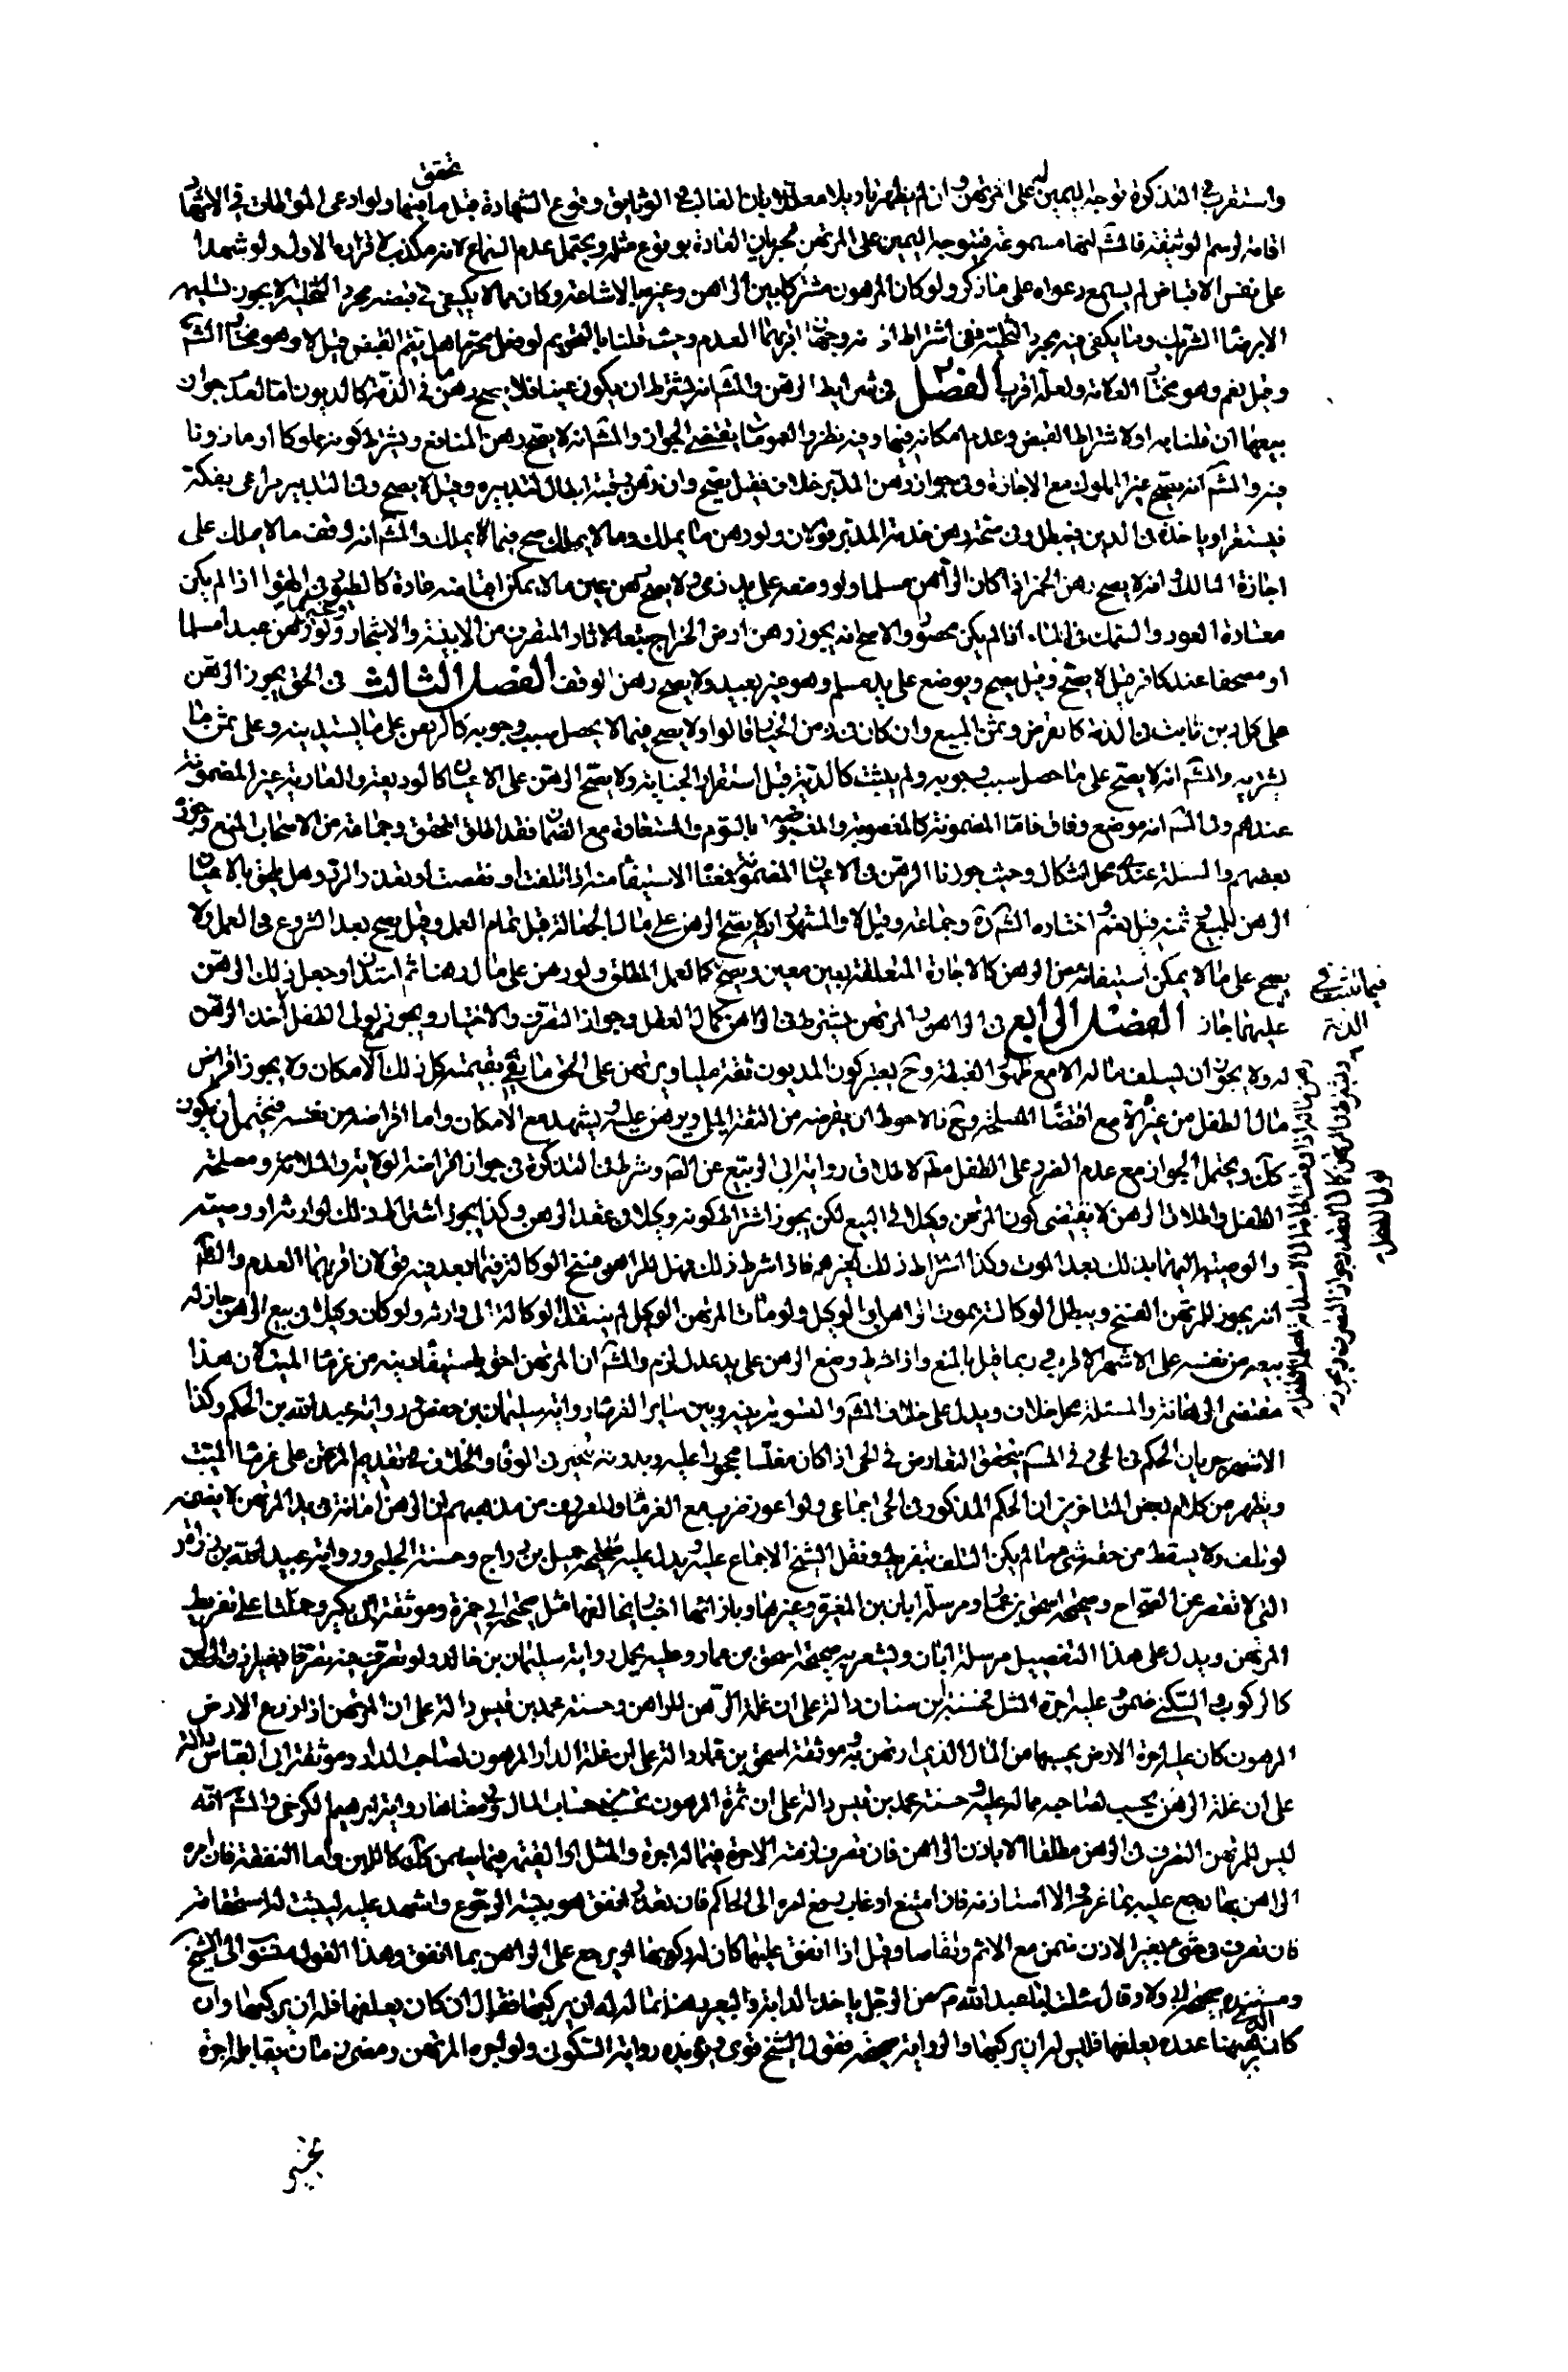 واستقرب في التذكرة توجه اليمين له على المرتهن وان لم يظهر تاويلا معللا بان الغالب في الوثايق وقوع الشهادة قبل تحقق ما فيها ولو ادعى المواطاة في الاشهاد
اقامة لرسم الوثيقة فالمشهور انها مسموعة فيتوجه اليمين على المرتهن لجريان العادة بوقوع مثله ويحتمل عدم السماع لانه مكذب لاقراره الاول ولو شهدا
على نفس الاقباض لم يسمع دعواه على ما ذكر ولو كان المرهون مشتركا بين الراهن وغيره بالاشاعة وكان مما لا يكفي في قبضه مجرد التخلية لا يجوز تسليمه
الا برضا الشريك وما يكفي فيه مجرد التخلية ففي اشتراط اذنه وجهان اقربهما العدم وحيث قلنا بالتحريم لو فعل محرما هل يتم القبض قيل لا وهو مختار الشهيد
وقيل نعم وهو مختار العلامة ولعله اقرب الفصل في شرايط الرهن والمشهور انه يشترط ان يكون عينا فلا يصح رهن ما في الذمة كالديون اما لعدم جواز
بيعها ان قلنا به او لاشتراط القبض وعدم امكانه فيها وفيه نظر والعمومات يقتضي الجواز والمشهور انه لا يصح رهن المنافع ويشترط كونه مملوكا او ماذونا
فيه والمشهور انه يصح غير المملوك مع الاجازة وفي جواز رهن المدبر خلاف فقيل يصح وان رهن رقبته ابطال لتدبيره وقيل لا يصح وقيل التدبير مراعى بفكه
فيستقر او ياخذه في الدين فيبطل وفي صحة رهن خدمة المدبر قولان ولو رهن ما يملك وما لا يملك صح فيما يملك والمشهور انه وقف ما لا يملك على
اجازة المالك وانه لا يصح رهن الخمر اذا كان الراهن مسلما ولو وضعه على يد ذمي ولا يصح رهن عين ما لا يمكن اقباضه عادة كالطير في الهواء اذا لم يكن
معتادة العود والسمك في الماء اذا لم يكن محصورا والاصح انه يجوز رهن ارض الخراج تبعا لآثار المتصرف من الابنية والاشجار ولو رهن عبدا مسلما
او مصحفا عند كافر قيل لا يصح وقيل يصح ويوضع على يد مسلم وهو غير بعيد ولا يصح رهن الوقف الفصل الثالث في الحق يجوز الرهن
على كل دين ثابت في الذمة كالقرض وثمن المبيع وان كان في زمن الخيار قالوا ولا يصح فيما لا يحصل سبب وجوبه كالرهن على ما يستدينه وعلى ثمن ما
يشتريه والمشهور انه لا يصح على ما حصل سبب وجوبه ولم يثبت كالدية قبل استقرار الجناية ولا يصح الرهن على الاعيان كالوديعة والعارية غير المضمونة
عندهم وفي المشهور انه موضع وفاق فاما المضمونة كالمغصوبة والمقبوضة بالسوم والمستعارة مع الضمان فقد اطلق المحقق وجماعة من الاصحاب المنع وجوزه
بعضهم والمسئلة عندي محل اشكال وحيث جوزنا الرهن في الاعيان المضمونة فمعنا الاستيفاء منه اذا تلفت او نقصت او تعذر الرد وهل يلحق بالاعيان
الرهن للمبيع وثمنه قيل نعم اختاره الشهيدان وجماعة وقيل لا والمشهور انه لا يصح الرهن على مال الجعالة قبل تمام العمل وقيل يصح بعد الشروع في العمل ولا
يصح على ما لا يمكن استيفائه من الرهن كالاجارة المتعلقة بعين معين ويصح كما لعمل المطلق ولو رهن على مال رهنا ثم استدان اخر وجعل ذلك الرهن
عليهما جاز الفصل الرابع في الراهن والمرتهن يشترط في الراهن كمال العقل وجواز التصرف والاختيار ويجوز لولي الطفل اخذ الرهن
له ولا يجوز ان يسلف ماله الا مع ظهور الغبطة وح يعتبر كون المديون ثقة مليا ويرتهن على الحق ما يفي بقيمته كل ذلك مع الامكان ولا يجوز اقراض
مال الطفل من غيره الا مع اقتضاء المصلحة وح فالاحوط ان يقرضه من الثقة الملي ويرتهن عليه ويشهد مع الامكان واما اقراضه من نفسه فيحتمل ان يكون
كذلك ويحتمل الجواز مع عدم الضرر على الطفل مطلقا لاطلاق رواية ابي الربيع عن الصادق وشرط في التذكرة في جواز اقراضه الولاية والملائة ومصلحة
الطفل واطلاق الرهن لا يقتضي كون المرتهن وكيلا في البيع لكن يجوز اشتراط كونه وكيلا في عقد الرهن وكذا يجوز اشتراط ذلك لوارثه او وصيته
والوصية اليهما بذلك بعد الموت وكذا اشتراط ذلك لغيرهم فاذا شرط ذلك فهل للراهن فسخ الوكالة فيما بعد فيه قولان اقربهما العدم والظاهر
انه يجوز للمرتهن الفسخ ويبطل الوكالة بموت الراهن او الوكيل ولو مات المرتهن الوكيل لم ينتقل الوكالة الى وارثه ولو كان وكيلا في بيع الرهن جاز له
بيعه من نفسه على الاشهر الاظهر في ربما قيل بالمنع واذا شرط وضع الرهن على يد عدل لزم والمشهور ان المرتهن احق باستيفاء دينه من غرماء الميت لان هذا
مقتضى الرهانة والمسئلة محل خلاف ويدل على خلاف المشهور والتسوية بينه وبين ساير الغرماء رواية سليمان بن حفص ورواية عبد الله بن الحكم وكذا
الاشهر جريان الحكم في الحي وفي المشهور يتحقق التعارض في الحي اذا كان مفلسا محجورا عليه وبدونه يتخير في الوفاء والخلاف في تقديم المرتهن على غرماء الميت
ويظهر من كلام بعض المتاخرين ان الحكم المذكور في الحي اجماعي ولو اعوز ضرب مع الغرماء والمعروف من مذهبهم ان الرهن امانة في يد المرتهن لا يضمنه
لو تلف ولا يسقط من حقه شيء ما لم يكن التلف بتفريط ونقل الشيخ الاجماع عليه ويدل عليه صحيحة جميل بن دراج وحسنة الحلبي ورواية عبيد الله بن زرارة
التي لا تقصر عن الصحاح وصحيحة اسحق بن عمار ومرسلة ابان بن المغيرة وغيرها وبازائها اخبار يخالفها مثل صحيحة ابي حمزة وموثقة ابن بكير وحملنا على تفريط
المرتهن ويدل على هذا التفصيل مرسلة ابان ويشعر به صحيحة اسحق بن عمار وعليه يحمل رواية سليمان بن خالد ولو تصرف فيه تصرفا بغير اذن الراهن
كالركوب والسكنى ضمن وعليه اجرة المثل وحسنة ابن سنان دالة على ان غلة الرهن للراهن وحسنة محمد بن قيس دالة على ان المرتهن اذا زرع الارض
المرهون كان عليه اجرة الارض يحسبها من المال الذي ارتهن به وموثقة اسحق بن عمار دالة على ان غلة الدار المرهون لصاحب الدار وموثقة ابي العباس دالة
على ان غلة الرهن يحسب لصاحبه مما له عليه وحسنة محمد بن قيس دالة على ان ثمرة المرهون تحسب من حساب المال وفي معناها رواية ابرهيم الكرخي والمشهور انه
ليس للمرتهن التصرف في الرهن مطلقا الا باذن الراهن فان تصرف لزمته الاجرة فيما له اجرة والمثل او القيمة فيما يضمن كذلك كاللبن واما النفقة فان امره
الراهن بها رجع عليه بما غرم والا استاذنه فان امتنع او غاب رفع امره الى الحاكم فان تعذر انفق هو بنية الرجوع واشهد عليه ليثبت له استحقاقه
فان تصرف في شيء بغير الاذن ضمن مع الاثم وتقاصا وقيل اذا انفق عليها كان له ركوبها او يرجع على الراهن بما انفق وهذا القول منسوب الى الشيخ
ومستنده صحيحة ابي ولاد قال سئلت ابا عبد الله ع عن الرجل ياخذ الدابة والبعير رهنا بماله اله ان يركبهما فقال ان كان يعلفهما فله ان يركبهما وان
كان الذي رهنهما عنده يعلفهما فليس له ان يركبهما والرواية صحيحة فقول الشيخ قوي ويؤيده رواية السكوني ولو اجره المرتهن ومضى زمان يقابله اجرة
فيما ثبت في
الذمة
لولي الطفل
بخير